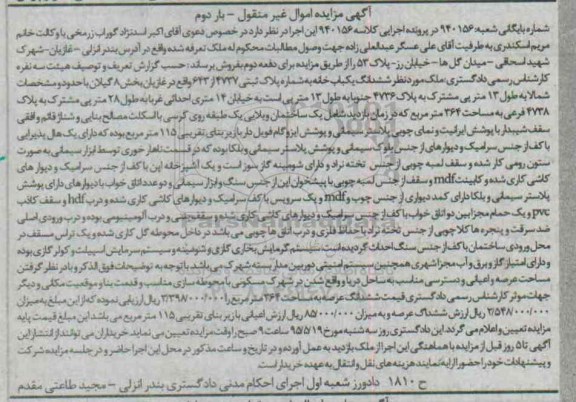 آگهی مزایده اموال غیر منقول - بار دوم
شماره بایگانی شعبه: ۹۴۰۱۵۶ در پرونده اجرایی کلاسه ۹۴۰۱۵۶ این اجرا در نظر دارد در خصوص دعوی آقای اکبر اسدنژاد گوراب زرمخی با وکالت خانم
مریم اسکندری به طرفیت آقای علی عسگر عبدالعلی زاده جهت وصول مطالبات محکوم له ملک تعرفه شده واقع در آدرس بندر انزلی - غازیان - شهرک
شهید اسحاقی - میدان گل ها - خیابان رز - پلاک ۵۳ را از طریق مزایده برای دفعه دوم بفروش برساند: حسب گزارش تعریف و توصیف هیئت سه نفره
کارشناس رسمی دادگستری: ملک مورد نظر ششدانگ یکباب خانه به شماره پلاک ثبتی ۴۷۳۷ از ۶۴۳ واقع در غازیان بخش ۸ گیلان با حدود و مشخصات
شمالا به طول ۱۳ متر پی مشترک به پلاک ۴۷۳۶ جنوبا به طول ۱۳ متر پی است به خیابان ۱۴ متری احداثی غربا به طول ۲۸ متر پی مشترک به پلاک
۴۷۳۸ فرعی به مساحت ۳۶۴ متر مربع که در زمان بازدید شامل یک ساختمان ویلایی یک طبقه روی کرسی با اسکلت مصالح بنایی و شناژ قائم و افقی
سقف شیبدار با پوشش ایرانیت و نمای چوبی پلاستر سیمانی و پوشش ایزوگام فویل دار با زیر بنای تقریبی ۱۱۵ متر مربع بوده که دارای یک هال پذیرایی
با کف از جنس سرامیک و دیوارهای از جنس بلوک سیمانی و پوشش پلاستر سیمانی و بلکا بوده که در قسمت ناهار خوری توسط ابزار سیمانی به صورت
ستون رومی کار شده و سقف لمبه چوبی از جنس تخته نراد و دارای شومینه گاز سوز است و یک آشپزخانه اپن با کف از جنس سرامیک و دیوار های
کاشی کاری شده و کابینت mdf و سقف از جنس لمبه چوبی با پیشخوان اپن از جنس سنگ و ابزار سیمانی و دو عدد اتاق خواب با دیوارهای دارای پوشش
پلاستر سیمانی و بلکا دارای کمد دیواری از جنس چوب و mdf و یک سرویس با کف سرامیک و دیوارهای کاشی کاری شده و درب hdf و سقف کاذب
pvc و یک حمام مجزا بین دو اتاق خواب با کف از جنس سرامیک و دیوارهای کاشی کاری شده و سقف چوبی و درب آلومینیومی بوده و درب ورودی اصلی
ضد سرقت و پنجره ها کلا چوبی از جنس تخته نراد با حفاظ فلزی و درب اتاق ها چوبی می باشد در داخل محوطه گل کاری شده و یک تراس مسقف در
محل ورودی ساختمان با کف از جنس سنگ احداث گردیده است سیستم گرمایش بخاری گازی و شومینه و سیستم سرمایش اسپیلت و کولر گازی بوده
و دارای امتیاز گاز و برق و آب مجزا شهری همچنین سیستم امنیتی دوربین مدار بسته مشترک می باشد با توجه به توضیحات فوق الذکر و با در نظر گرفتن
مساحت عرصه و اعیانی و دسترسی مناسب به ساحل دریا و واقع شدن در شهرک مسکونی با محوطه سازی مناسب و قدمت بنا و موقعیت مکانی و دیگر
جهات موثر کارشناس رسمی دادگستری قیمت ششدانگ عرصه به مساحت ۳۶۴ متر مربع را ۳/۳۹۸/۰۰۰/۰۰۰ ریال ارزیابی نموده که از این مبلغ به میزان
۲/۵۴۸/۰۰۰/۰۰۰ ریال ارزش ششدانگ عرصه و به میزان ۸۵۰/۰۰۰/۰۰۰ ریال ارزش اعیانی با زیر بنای تقریبی ۱۱۵ متر مربع می باشد این مبلغ قیمت پایه
مزایده تعیین و اعلام می گردد این دادگستری روز سه شنبه مورخ ۹۵/۵/۱۹ ساعت ۹ صبح را وقت مزایده تعیین می نماید خریداران می توانند از انتشار این
آگهی تا ۵ روز قبل از مزایده با هماهنگی این اجرا از ملک بازدید به عمل آورده و در تاریخ و ساعت مذکور در محل این اجرا حاضر و در جلسه مزایده شرکت
و پیشنهادات خود را حضورا ارایه نمایند هزینه های نقل و انتقال به عهده خریدار است
ح ۱۸۱۰ دادورز شعبه اول اجرای احکام مدنی دادگستری بندر انزلی - مجید طاعتی مقدم